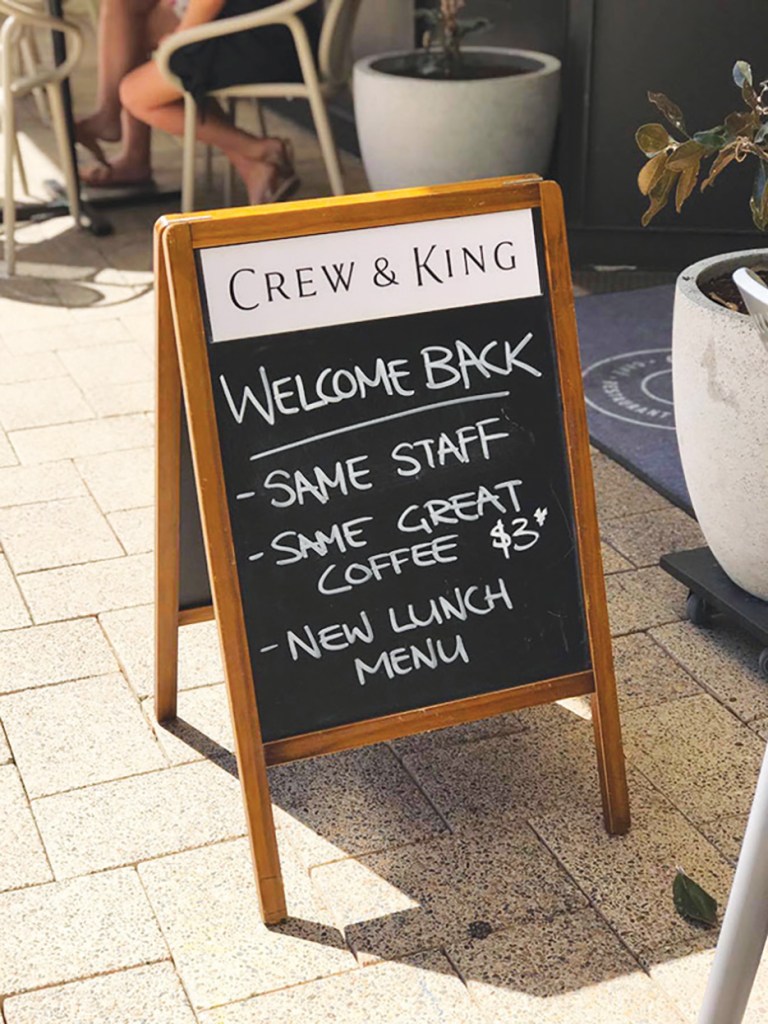 CREW & KING
WELCOME BACK
- SAME STAFF
- SAME GREAT
COFFEE $3*
- NEW LUNCH
MENU
RESTAURANT